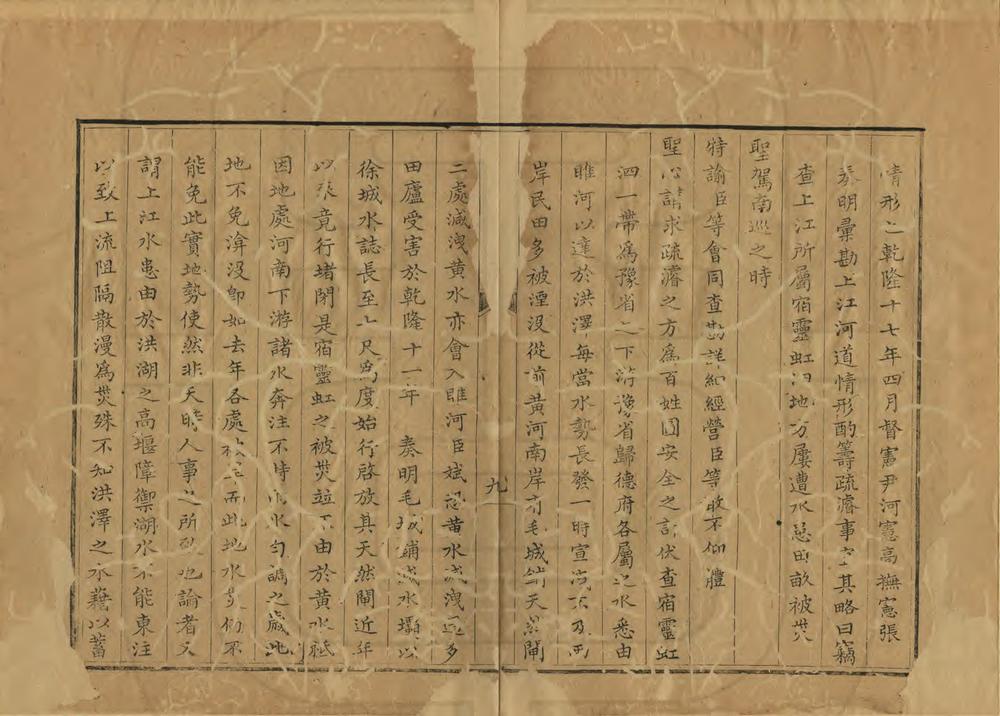 情形乾隆十七年四月督憲尹河憲高撫憲張
奏明彙勘上江河道情形酌籌疏濬事宜其略曰竊
查上江所屬宿靈虹泗地方屢遭水患田畝被災
聖駕南巡之時
特諭臣等會同查勘詳細經營臣等敢不仰體
聖心講求疏濬之方爲百姓圖安全之計伏查宿靈虹
泗一帶爲豫省之下游豫省歸德府各屬之水悉由
睢河以達於洪澤每當水勢長發一時宣洩不及兩
岸民田多被湮没從前黄河南岸有毛城鋪天然閘
九
二處減洩黄水亦會入睢河臣斌恐黄水減洩過多
田廬受害於乾隆十一年 奏明毛城鋪減水壩以
徐城水誌長至七尺爲度始行啓放其天然閘近年
以來竟行堵閉是宿靈虹之被災並不由於黄水祗
因地處河南下游諸水奔注不特水勻調之歲此
地不免渰没即如去年各處秋而此地水災仍不
能免此實地勢使然非天時人事之所致也論者又
謂上江水患由於洪湖之高堰障禦湖水不能東注
以致上流阻隔散漫爲災殊不知洪澤之水藉以蓄